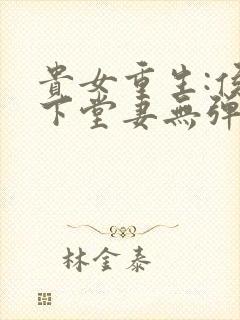 貴女重生:
下堂妻無彈
林金泰